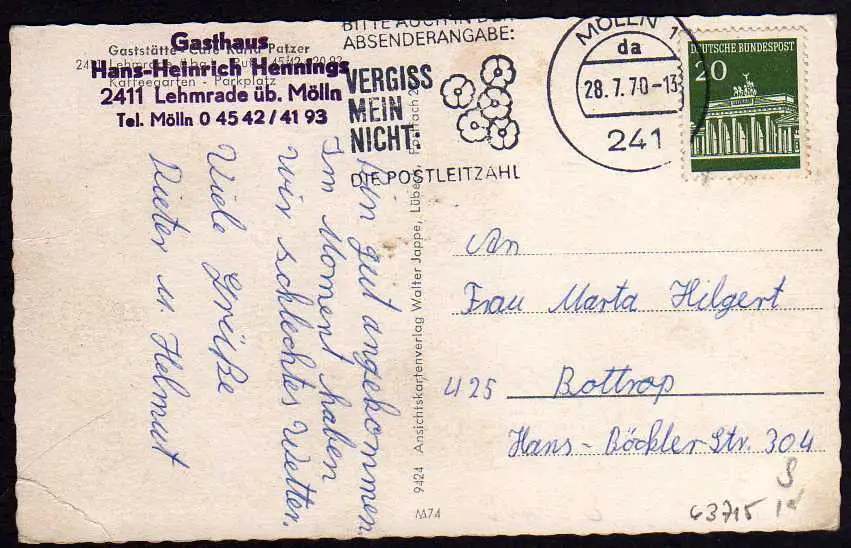 Gaststätte - Café Karla Patzer
Kaffeegarten - Parkplatz
Gasthaus
Hans-Heinrich Hennings
2411 Lehmrade üb. Mölln
Tel. Mölln 0 45 42 / 41 93
BITTE AUCH IN DER
ABSENDERANGABE:
VERGISS
MEIN
NICHT.
DIE POSTLEITZAHL
MÖLLN 1
da
28.7.70-13
241
DEUTSCHE BUNDESPOST
20
gut angekommen.
Im Moment haben
wir schlechtes Wetter.
Viele Grüße
Dieter u. Helmut
9424 Ansichtskartenverlag Walter Jappe, Lübeck, Postfach 2
M74
An
Frau Marta Hilgert
425 Bottrop
Hans-Böckler Str. 304
63715